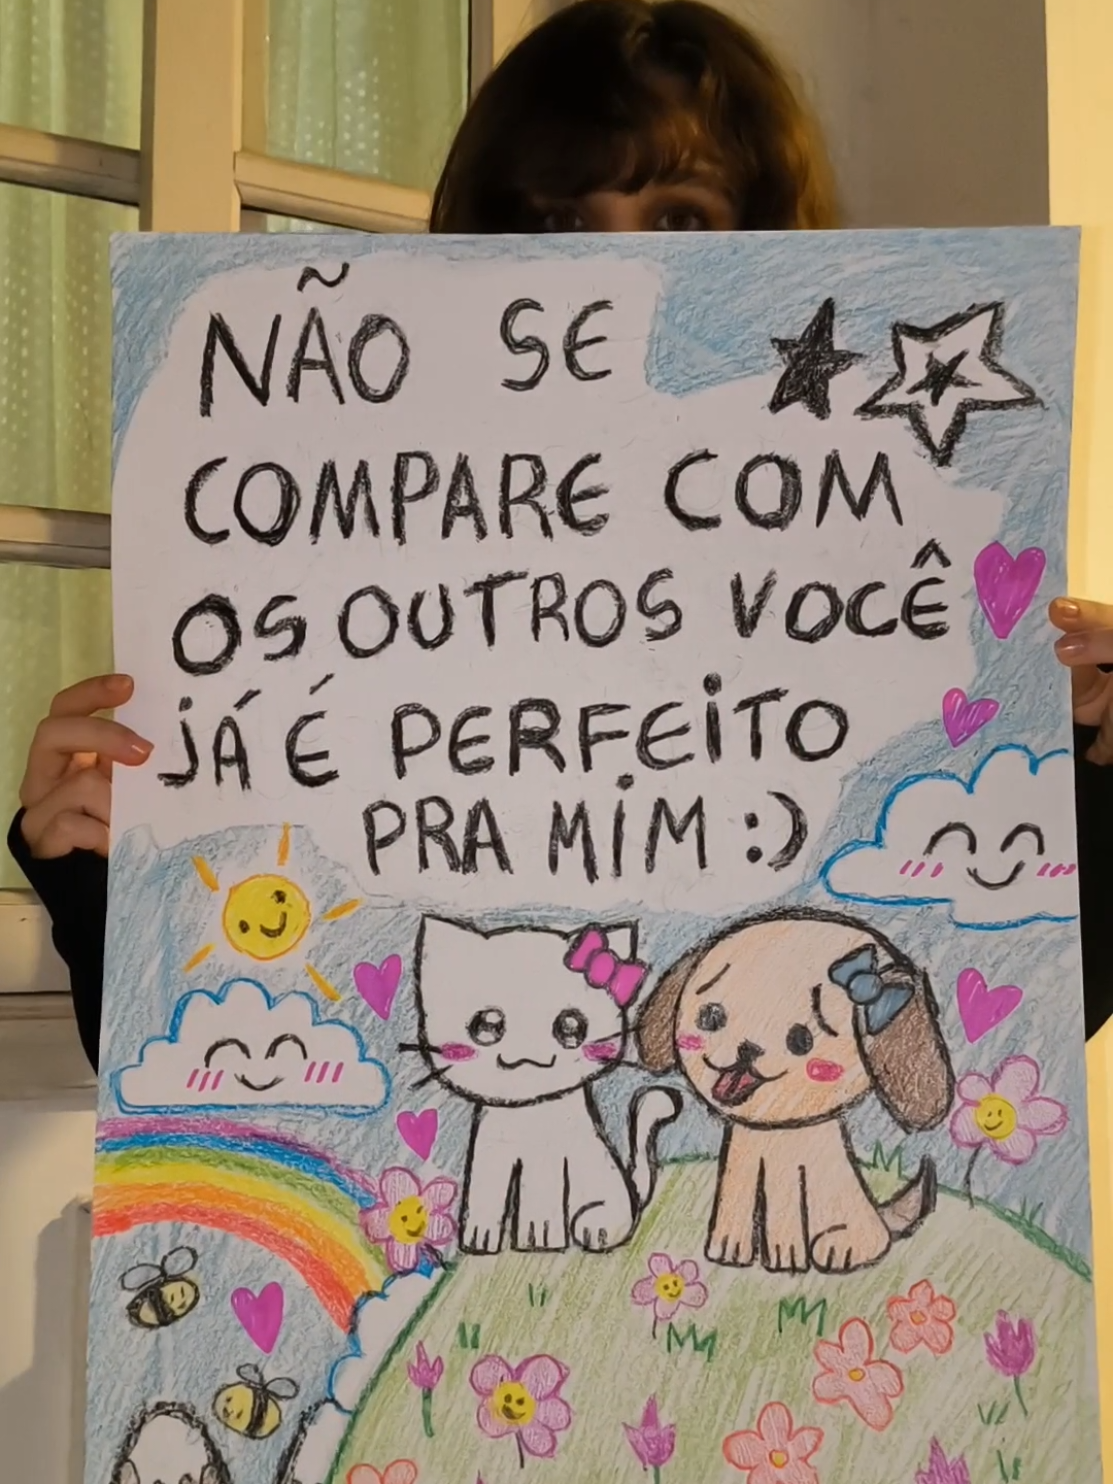 NÃO SE
COMPARE COM
OS OUTROS VOCÊ
JÁ É PERFEITO
PRA MIM :)